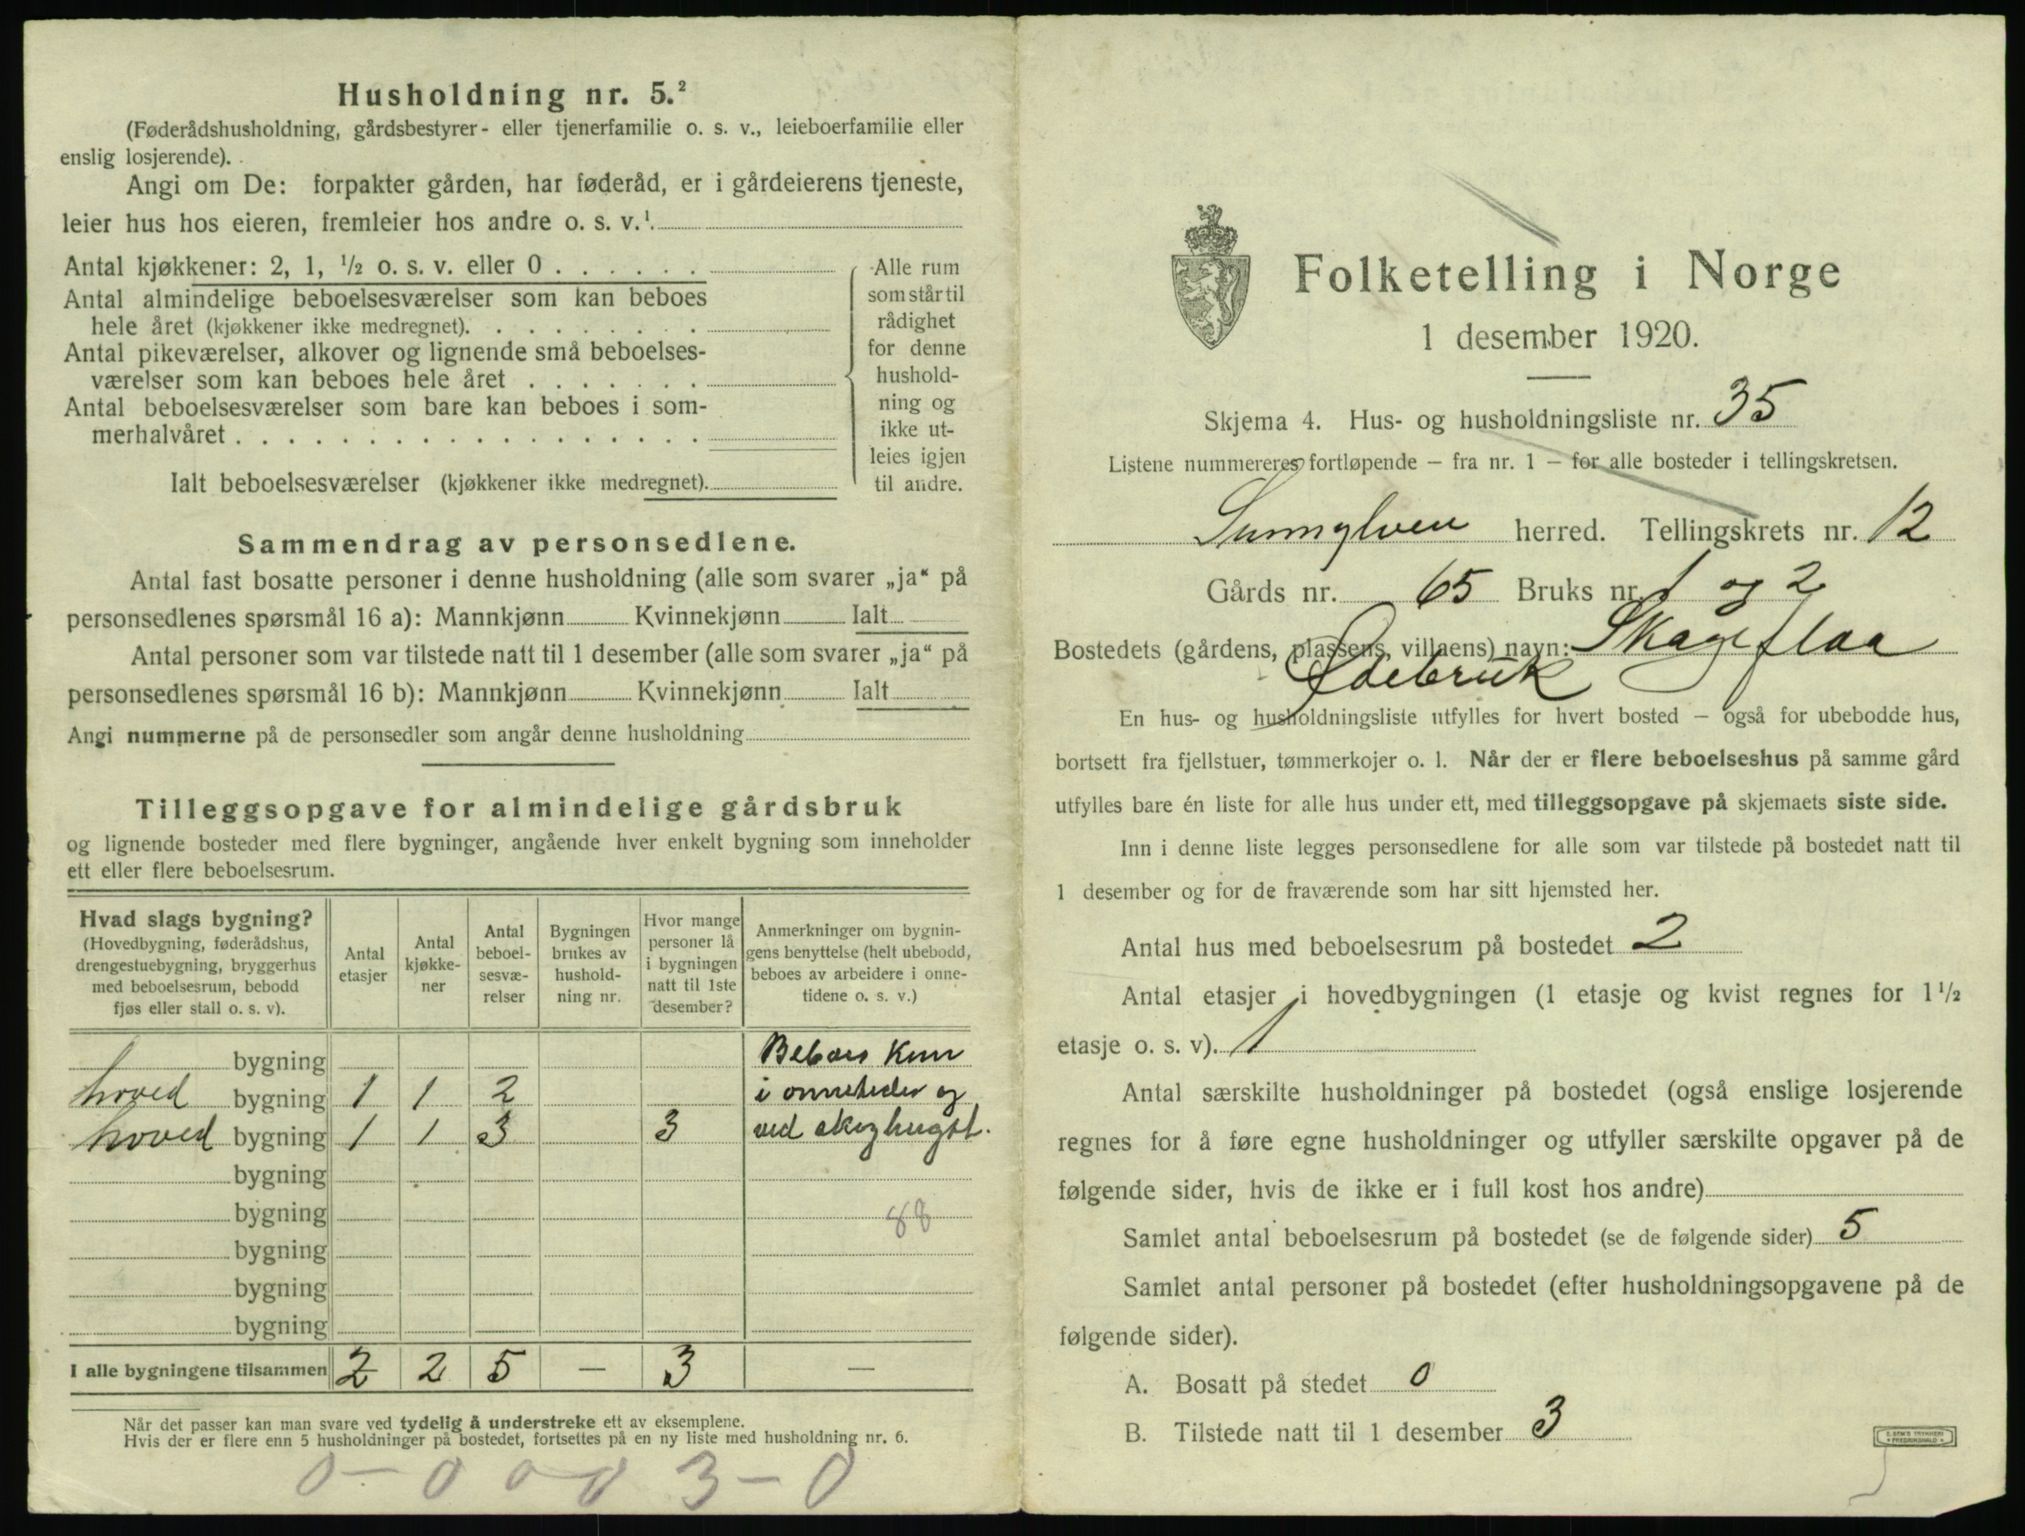 Husholdning nr. 5.²
(Føderådshusholdning, gårdsbestyrer- eller tjenerfamilie o. s. v., leieboerfamilie eller
enslig losjerende).
Angi om De: forpakter gården, har føderåd, er i gårdeierens tjeneste,
leier hus hos eieren, fremleier hos andre o. s. v.¹
Antal kjøkkener: 2, 1, ½ o. s. v. eller 0
Antal almindelige beboelsesværelser som kan beboes
hele året (kjøkkener ikke medregnet).
Antal pikeværelser, alkover og lignende små beboelses-
værelser som kan beboes hele året
Antal beboelsesværelser som bare kan beboes i som-
merhalvåret
Ialt beboelsesværelser (kjøkkener ikke medregnet).
Alle rum
som står til
rådighet
for denne
hushold-
ning og
ikke ut-
leies igjen
til andre.
Sammendrag av personsedlene.
Antal fast bosatte personer i denne husholdning (alle som svarer „ja“ på
personsedlenes spørsmål 16 a): Mannkjønn Kvinnekjønn Ialt
Antal personer som var tilstede natt til 1 desember (alle som svarer „ja“ på
personsedlenes spørsmål 16 b): Mannkjønn Kvinnekjønn Ialt
Angi nummerne på de personsedler som angår denne husholdning
Tilleggsopgave for almindelige gårdsbruk
og lignende bosteder med flere bygninger, angående hver enkelt bygning som inneholder
ett eller flere beboelsesrum.
Hvad slags bygning?
(Hovedbygning, føderådshus,
drengestuebygning, bryggerhus
med beboelsesrum, bebodd
fjøs eller stall o. s. v).
Antal
etasjer
Antal
kjøkke-
ner
Antal
beboel-
sesvæ-
relser
Bygningen
brukes av
hushold-
ning nr.
Hvor mange
personer lå
i bygningen
natt til 1ste
desember?
Anmerkninger om bygnin-
gens benyttelse (helt ubebodd,
beboes av arbeidere i onne-
tidene o. s. v.)
bygning Beboes kun
hoved bygning 1 1 2 i onnetider og
hoved bygning 1 1 3 3 ved skoghugst.
bygning
bygning 88
bygning
bygning
bygning
I alle bygningene tilsammen 2 2 5 — 3 —
Når det passer kan man svare ved tydelig å understreke ett av eksemplene.
Hvis der er flere enn 5 husholdninger på bostedet, fortsettes på en ny liste med husholdning nr. 6.
0 - 0 0 - 0 3 - 0
Folketelling i Norge
1 desember 1920.
Skjema 4. Hus- og husholdningsliste nr. 35
Listene nummereres fortløpende – fra nr. 1 – for alle bosteder i tellingskretsen.
Sunnylven herred. Tellingskrets nr. 12
Gårds nr. 65 Bruks nr. 1 og 2
Bostedets (gårdens, plassens, villaens) navn: Skageflaa
Ødebruk
En hus- og husholdningsliste utfylles for hvert bosted – også for ubebodde hus,
bortsett fra fjellstuer, tømmerkojer o. l. Når der er flere beboelseshus på samme gård
utfylles bare én liste for alle hus under ett, med tilleggsopgave på skjemaets siste side.
Inn i denne liste legges personsedlene for alle som var tilstede på bostedet natt til
1 desember og for de fraværende som har sitt hjemsted her.
Antal hus med beboelsesrum på bostedet 2
Antal etasjer i hovedbygningen (1 etasje og kvist regnes for 1½
etasje o. s. v). 1
Antal særskilte husholdninger på bostedet (også enslige losjerende
regnes for å føre egne husholdninger og utfyller særskilte opgaver på de
følgende sider, hvis de ikke er i full kost hos andre)
Samlet antal beboelsesrum på bostedet (se de følgende sider) 5
Samlet antal personer på bostedet (efter husholdningsopgavene på de
følgende sider).
A. Bosatt på stedet 0
B. Tilstede natt til 1 desember 3